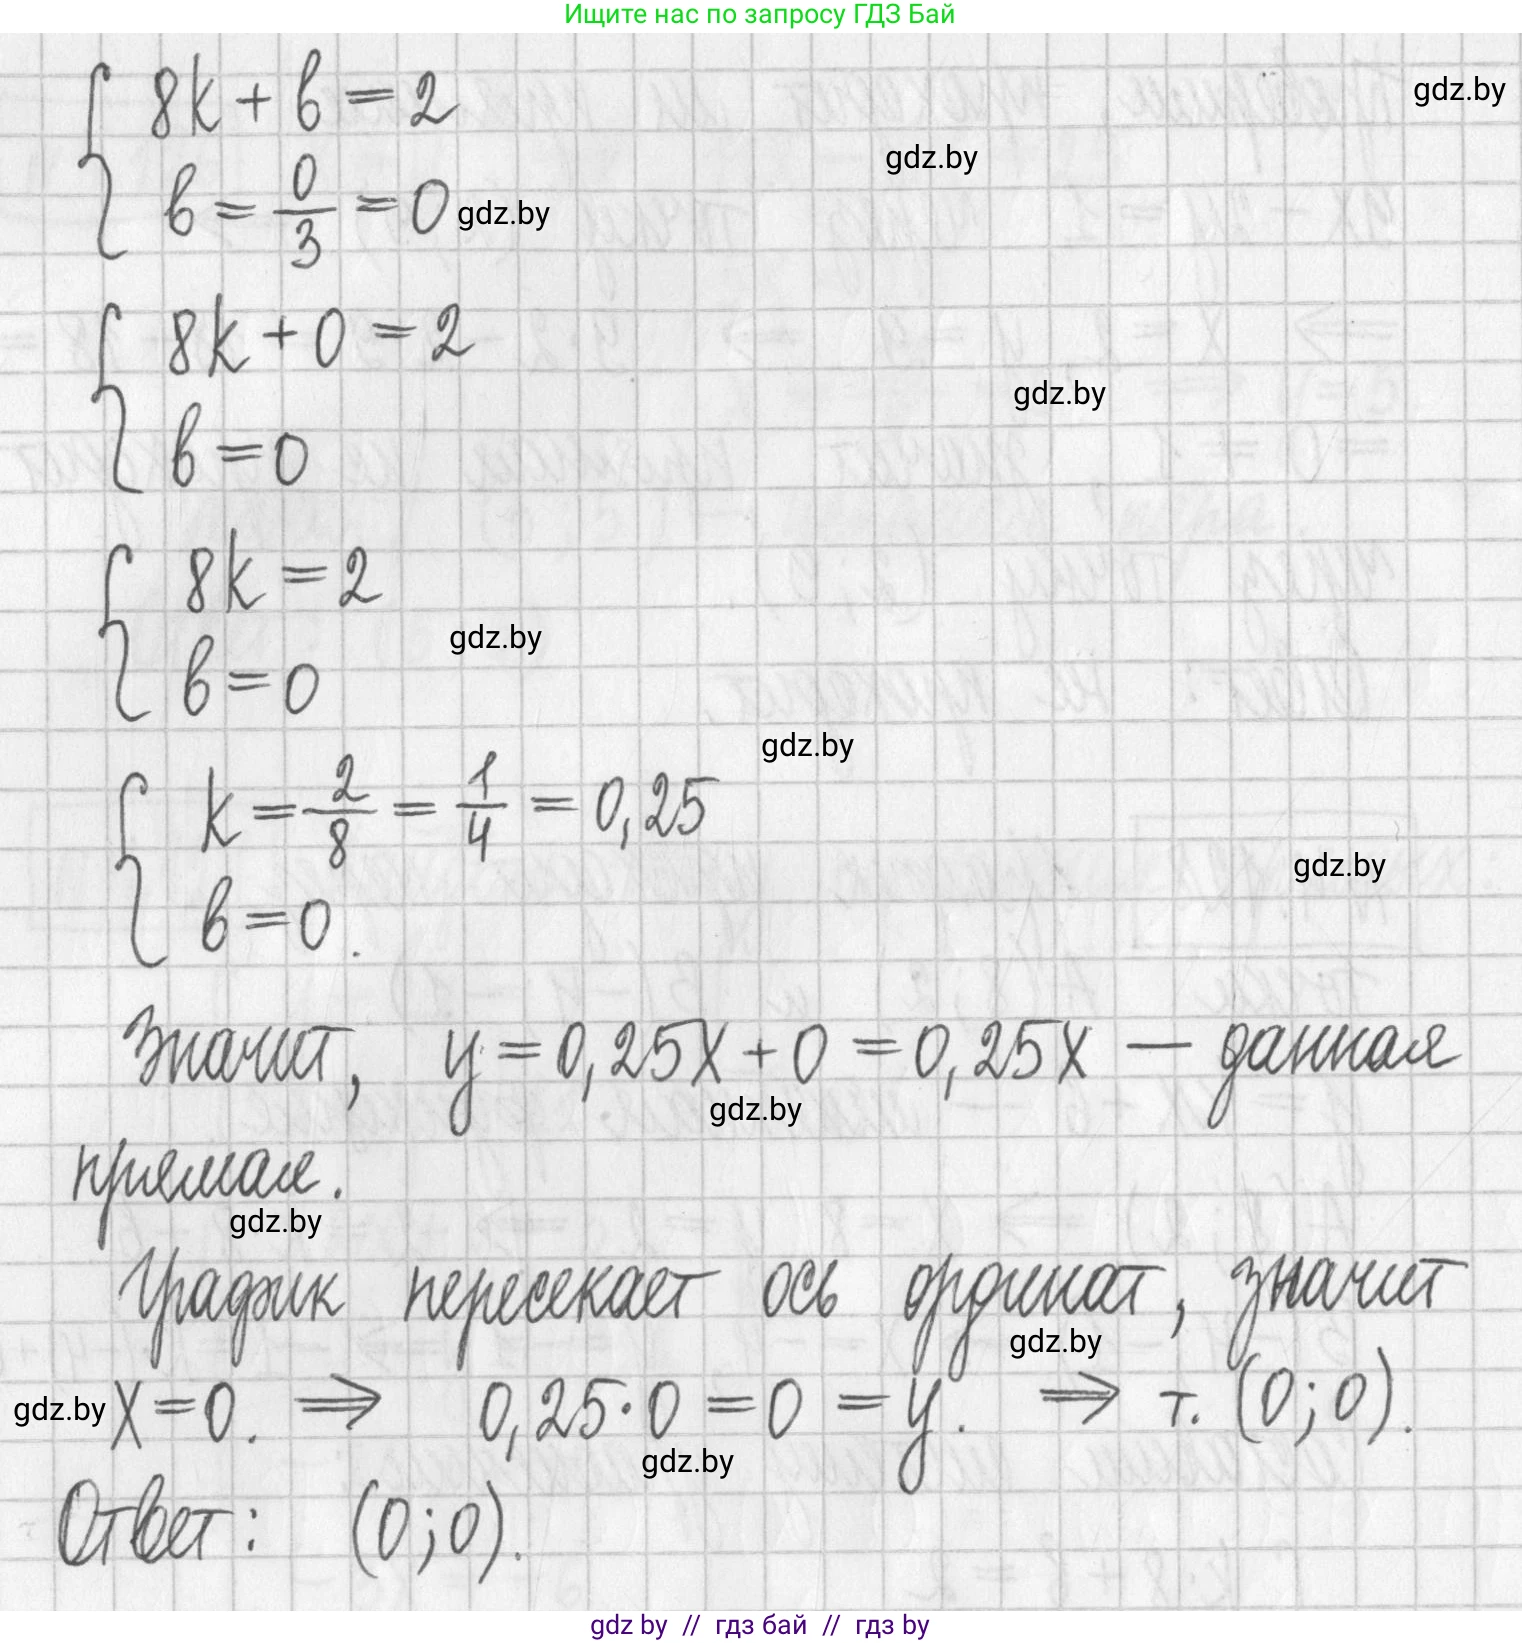 Ищите нас по запросу ГДЗ Бай
8k + b = 2
gdz.by
gdz.by
b = 0/3 = 0 gdz.by
8k + 0 = 2
gdz.by
b = 0
8k = 2
gdz.by
b = 0
gdz.by
k = 2/8 = 1/4 = 0,25
gdz.by
b = 0.
Значит, y = 0,25x + 0 = 0,25x — данная
gdz.by
прямая.
gdz.by
График пересекает ось ординат, значит
gdz.by
gdz.by x = 0. ⇒ 0,25·0 = 0 = y. ⇒ т. (0;0).
gdz.by
Ответ: (0;0).
gdz by // гдз бай // гдз by